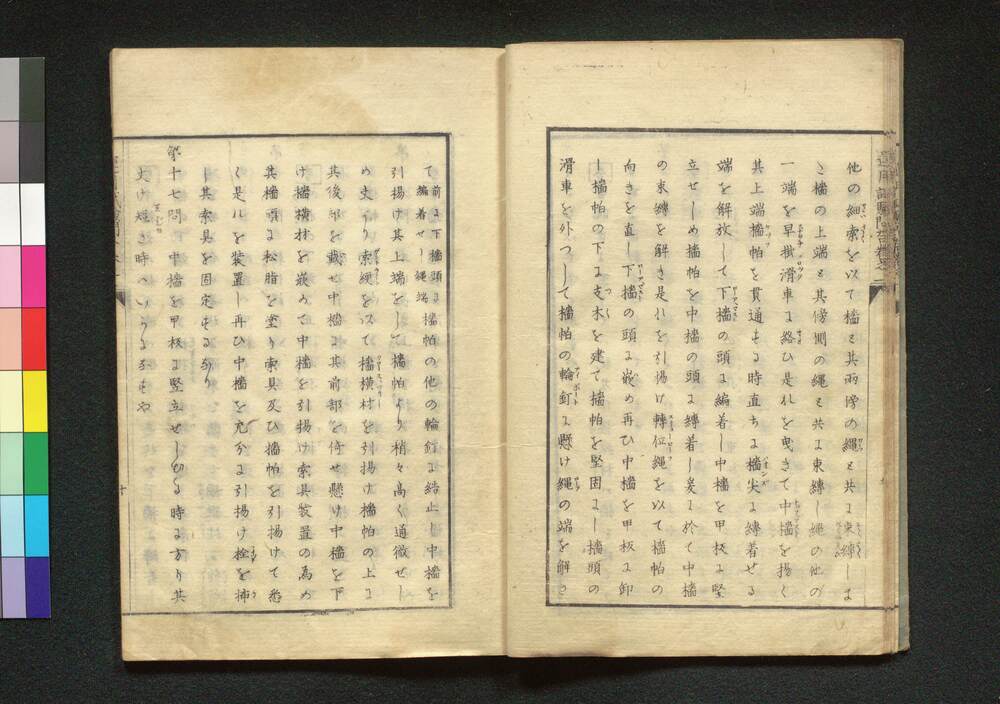 他の細索を以て檣と其両傍の縄と共に束縛しま
た檣の上端と其傍側の縄と共に束縛し縄の他の
一端を早掛滑車に絡ひ是れを曳きて中檣を揚く
其上端檣帕を貫通する時直ちに檣尖に縛着せる
端を解放して下檣の頭に編着し中檣を甲板に堅
立せしめ檣帕を中檣の頭に縛着し爰に於て中檣
の束縛を解き是れを引揚け轉位縄を以て檣帕の
向きを直し下檣の頭に嵌め再ひ中檣を甲板に卸
し檣帕の下に支木を建て檣帕を堅固にし檣頭の
滑車を外つして檣帕の輪釘に懸け縄の端を解き
て前に下檣頭に編着せし縄端檣帕の他の輪釘に結止し中檣を
引揚け其上端をして檣帕より稍々高く通徹せし
め更に索緩を以て檣横材を引揚け檣帕の上に
其後部を載せ中檣に其前部を倚せ懸け中檣を下
け檣横材を嵌めて中檣を引揚け索具装置の為め
其檣頭に松脂を塗り索具及ひ檣帕を引揚けて悉
く是れを装置し再ひ中檣を充分に引揚け栓を挿
し其索具を固定するなり
第十七問 中檣を甲板に竪立せしむる時に方り其
丈け短き時ハいかゝするや